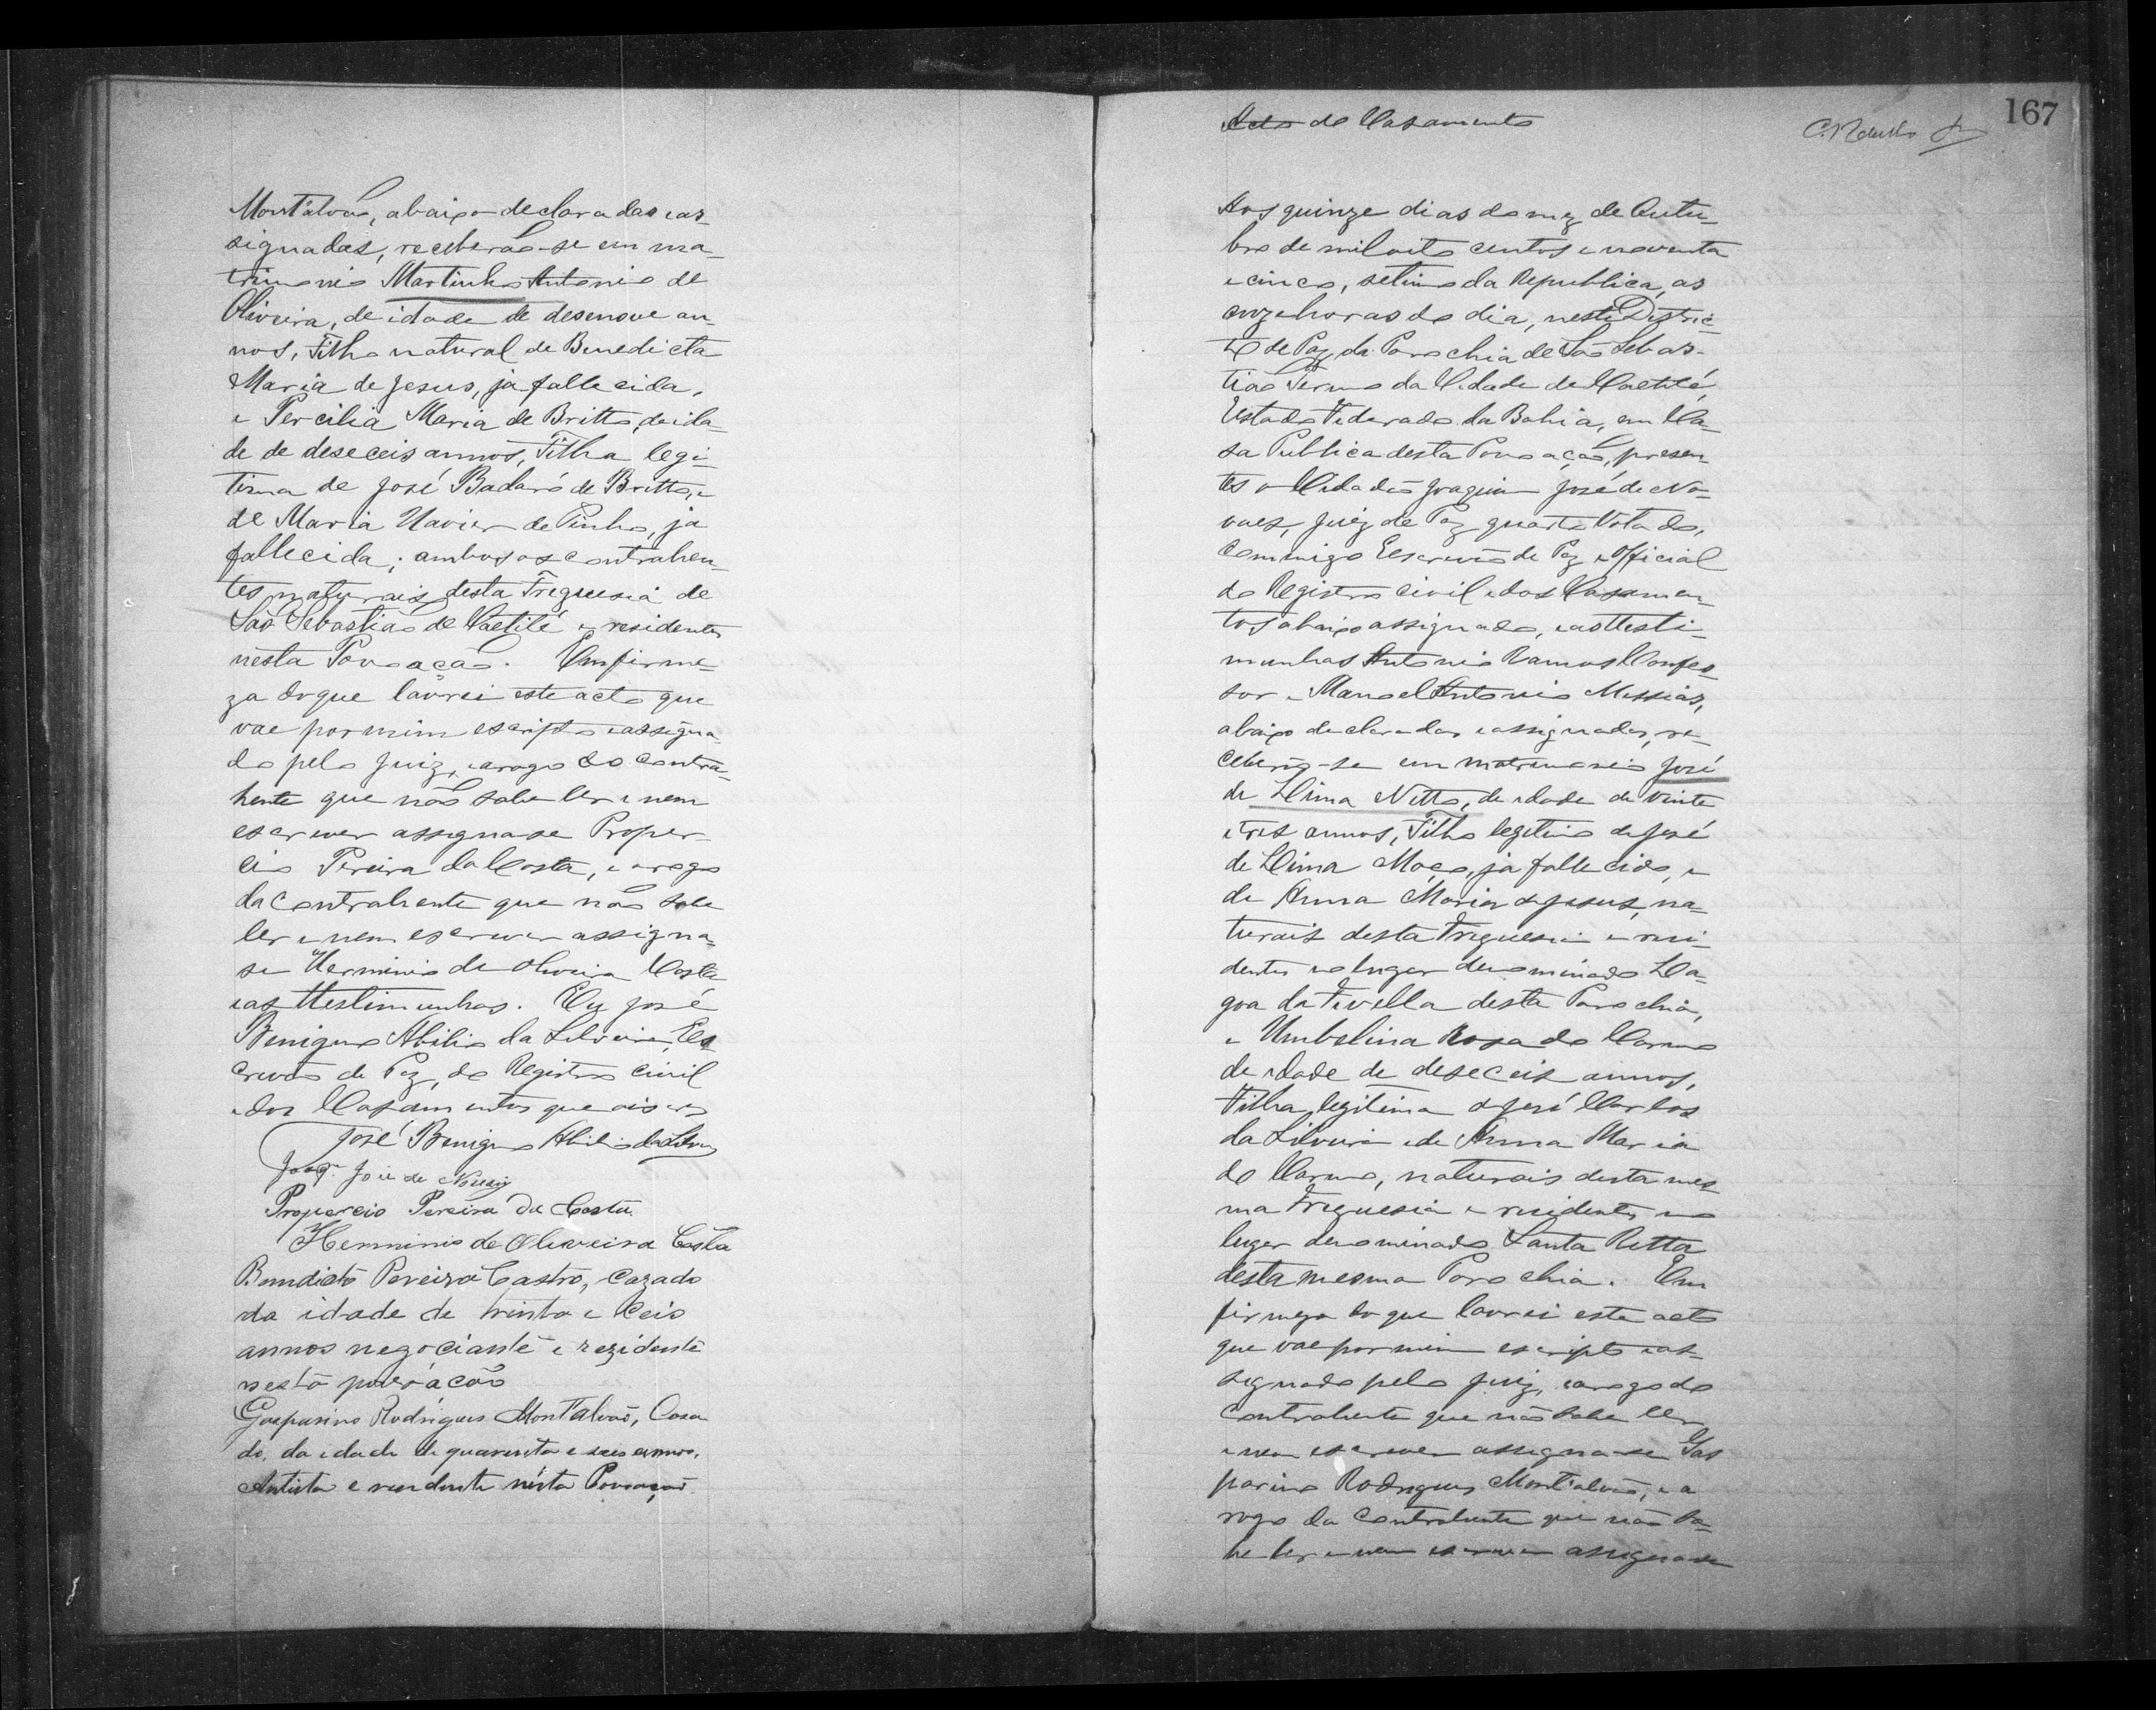 Montalvão, abaixo declaradas e as
signadas, receberão-se em ma-
trimonio Martinho Antonio de
Oliveira, de idade de desenove an-
nos, Filho natural de Benedicta
Maria de Jesus, ja fallecida,
e Percilia Maria de Britto, de ida-
de de deseceis annos, Filha legi-
tima de José Badaró de Britto, e
de Maria Xavier de Pinho, ja
fallecida; ambos os contrahen-
tes naturais desta Freguesia de
São Sebastião de Caetité e residentes
nesta Povoação. Em firme-
za do que lavrei este acto que
vae por mim escripto e assigna-
do pelo Juiz, e arogo do contra-
hente que não sabe ler e nem
escrever assigna-se Proper-
cio Pereira da Costa, e arogo
da Contrahente que não sabe
ler e nem escrever assigna-
se Herminio de Oliveira Costa
e as Testimunhas. Eu José
Benigno Abilio da Silveira, Es
crivão de Paz, do Registro Civil
e dos Casamentos que o escrevi
José Benigno Abilio da Silvra
Joaqm. José de Novais
Propercio Pereira da Costa.
Herminio de Oliveira Costa
Benedicto Pereira Castro, cazado
da idade de trinta e Ceis
annos negociante e rezidente
nesta povoação
Gasparino Rodrigues Montalvão, Casa
do, da idade de quarenta e seis annos,
Artista e residente nésta Povoação.
167
Acto de Casamento
Aos quinze dias do mez de Outu-
bro de mil oito centos e noventa
e cinco, setimo da Republica, as
onze horas do dia, neste Distric-
to de Paz da Parochia de São Sebas-
tião Termo da Cidade de Caetité,
Estado Federado da Bahia, em Ca-
sa Publica desta Povoação, presen-
tes o Cidadão Joaquim José de No-
vaes, Juiz de Paz quarto Votado,
Commigo Escrivão de Paz e Official
do Registro Civil e dos Casamen-
tos abaixo assignado, e as Testi-
munhas Antonio Ramos Confes
sor e Manoel Antonio Messias,
abaixo declaradas e assignadas, re-
ceberão-se em matrimonio José
de Lima Netto, de idade de vinte
e tres annos, Filho legitimo de José
de Lima Moço, ja fallecido, e
de Anna Maria de Jesus, na-
turais desta Freguesia e resi-
dentes no lugar denominado La-
goa da Fivella desta Parochia,
e Umbelina Rosa do Carmo
de idade de deseceis annos,
Filha legitima de José Carlos
da Silveira e de Anna Maria
do Carmo, naturais desta mes
ma Freguesia e residentes no
lugar denominado Santa Ritta
desta mesma Parochia. Em
firmeza do que lavrei este acto
que vae por mim escripto e as-
signado pelo Juiz, e arogo do
Contrahente que não sabe ler
e nem escrever assigna-se Gas
parino Rodrigues Montalvão, e a
rogo da Contrahente que não sa-
be ler e nem escrever assigna-se